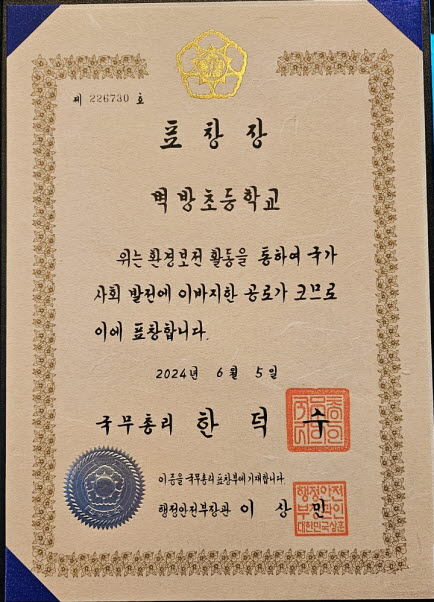 제 226730 호
표창장
벽방초등학교
위는 환경보전 활동을 통하여 국가
사회 발전에 이바지한 공로가 크므로
이에 표창합니다.
2024년 6월 5일
국무총리 한덕수
이 증을 국무총리 표창부에 기재합니다.
행정안전부장관 이상민
행정안전
부장관인
대한민국상훈